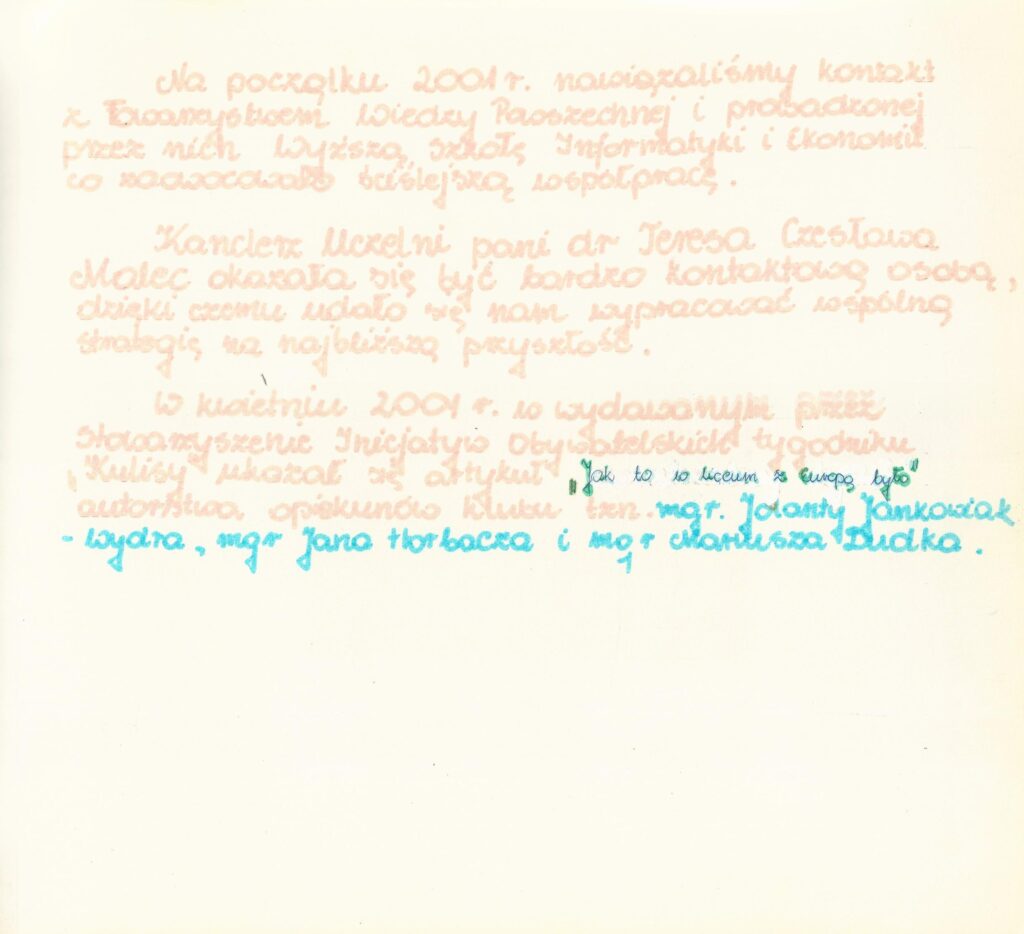 Na początku 2001 r. nawiązaliśmy kontakt
z Towarzystwem Wiedzy Powszechnej i prowadzonej
przez nich Wyższą Szkołę Informatyki i Ekonomii
co zaowocowało ściślejszą współpracę.
Kanclerz Uczelni pani dr Teresa Czesława
Malec okazała się być bardzo kontaktową osobą,
dzięki czemu udało się nam wypracować wspólną
strategię na najbliższą przyszłość.
W kwietniu 2001 r. w wydawanym przez
Stowarzyszenie Inicjatyw Obywatelskich tygodniku
"Kulisy" ukazał się artykuł „Jak to w liceum z Europą było"
autorstwa opiekunów klubu tzn. mgr. Jolanty Jankowiak
- Wydra, mgr Jana Horbacza i mgr Mariusza Dudka.